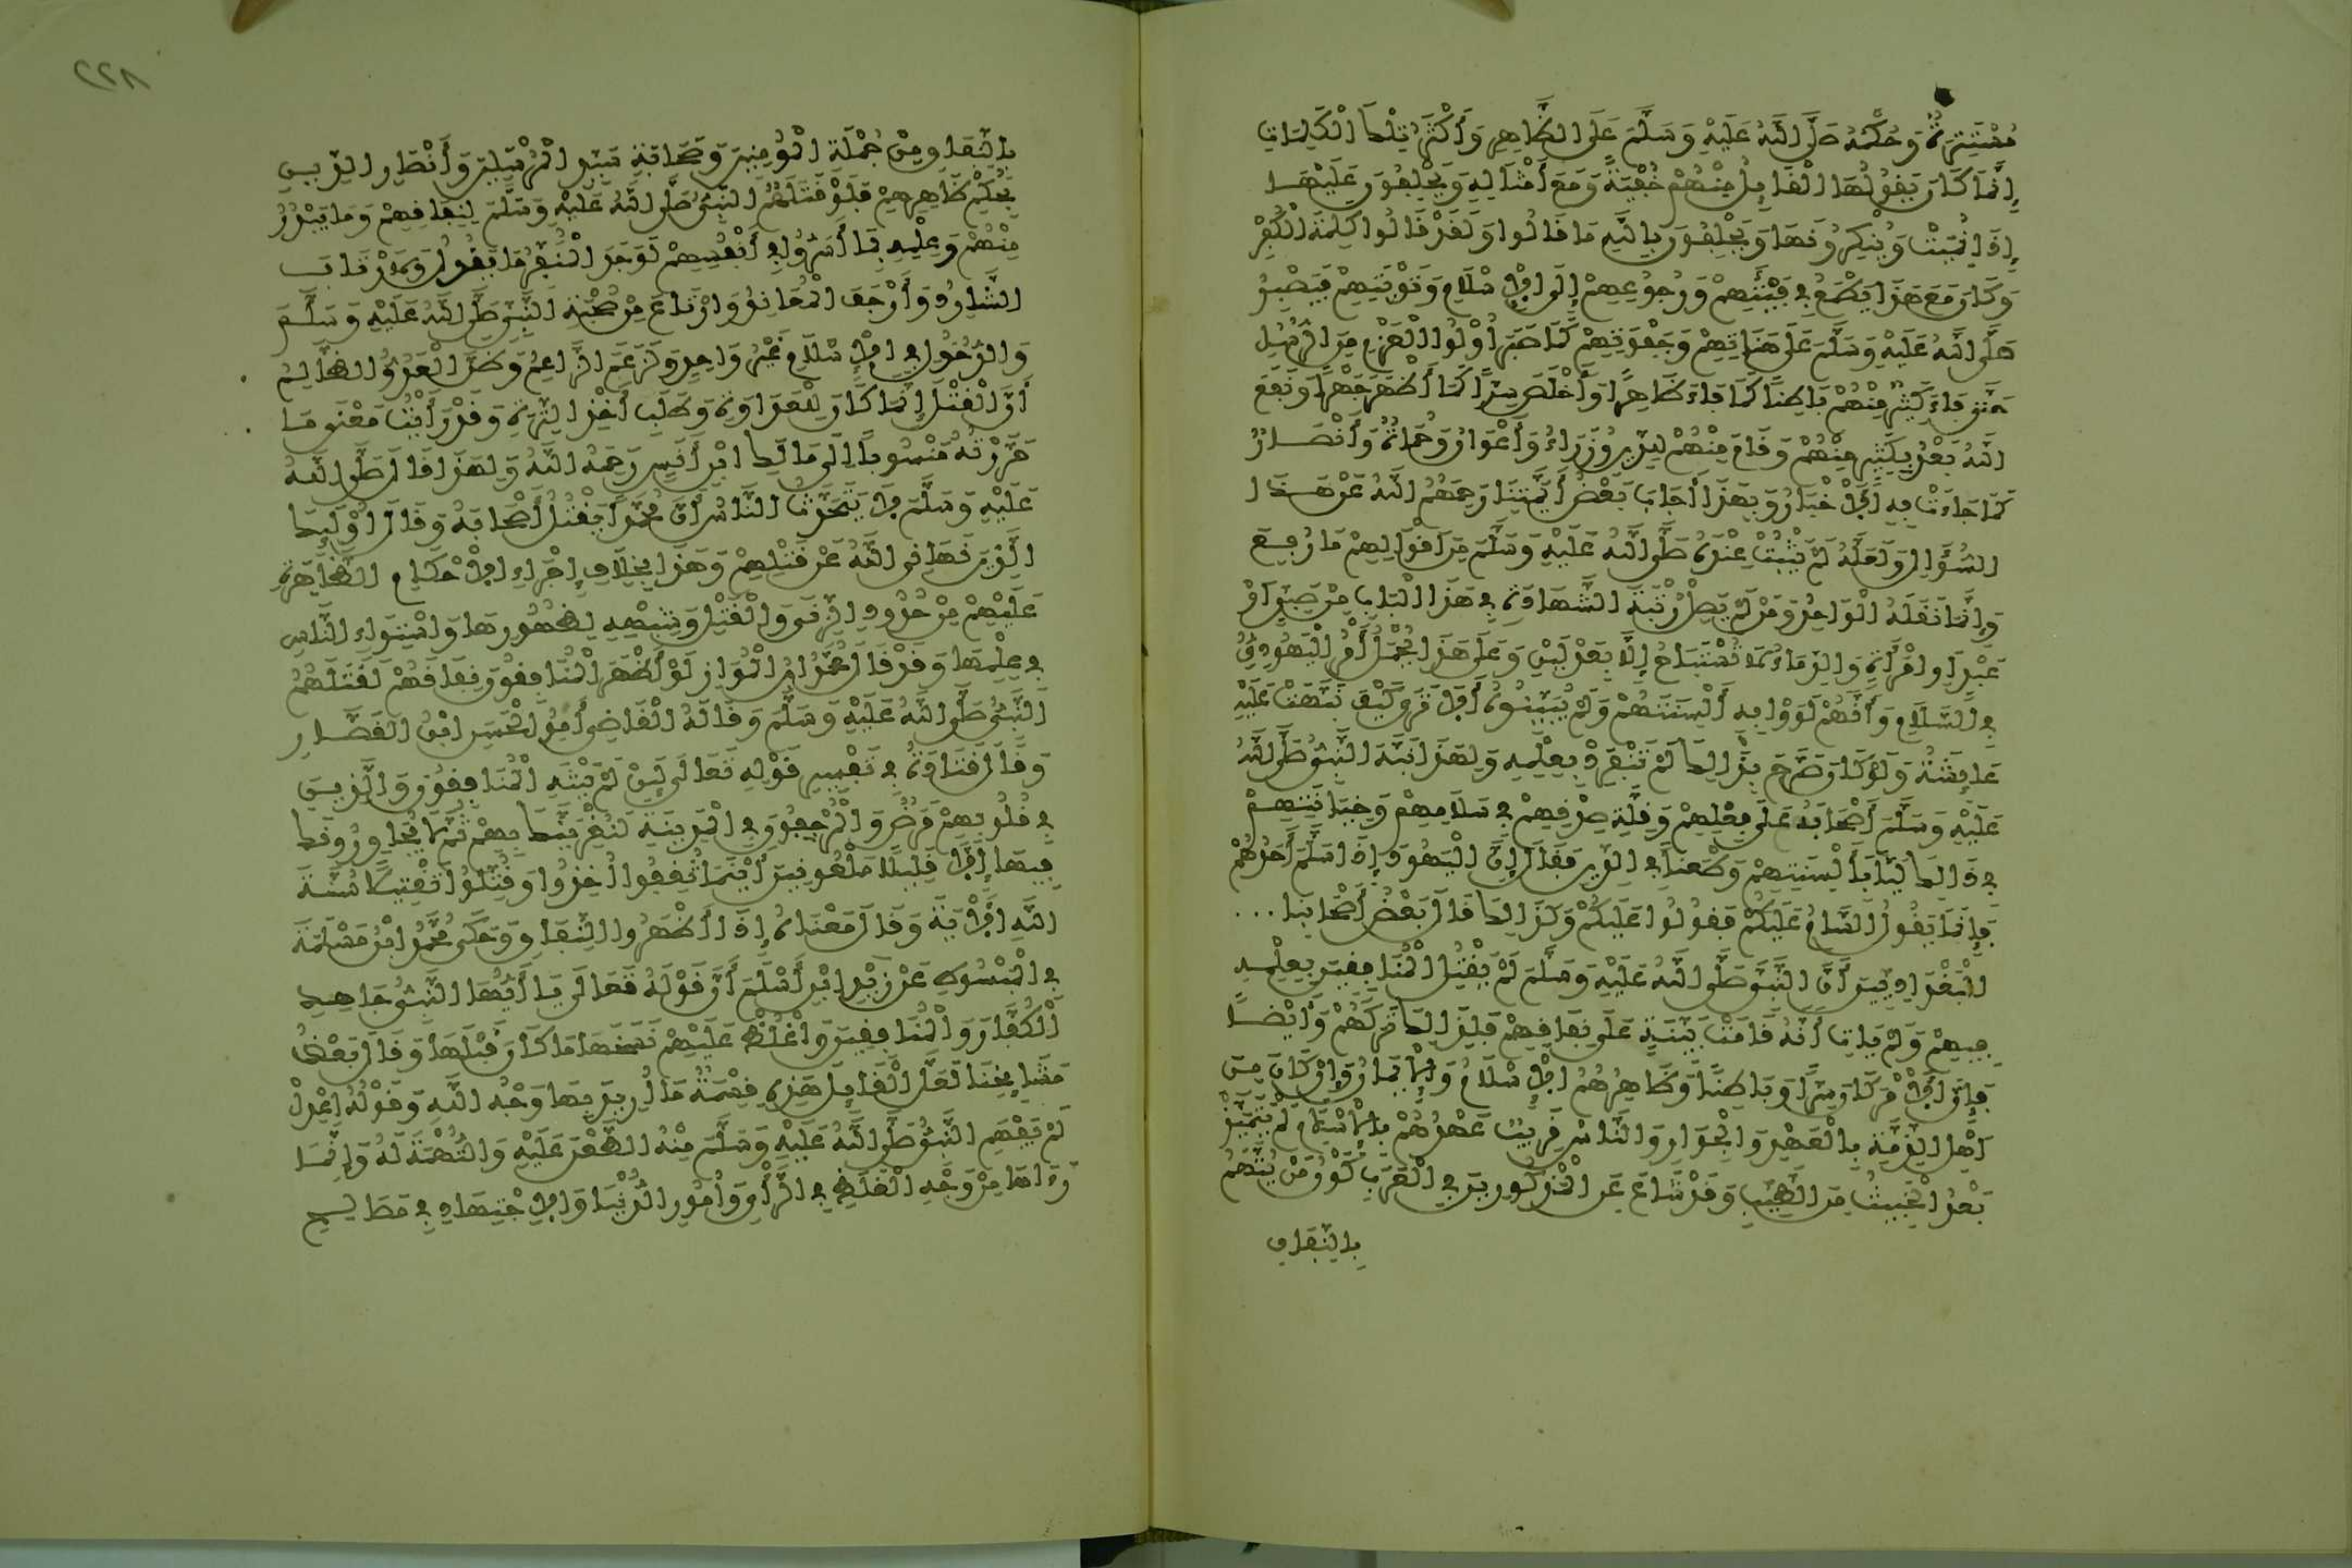 مُسْتَتِرَةٌ وَحُكْمُهُ صَلَّى اللَّهُ عَلَيْهِ وَسَلَّمَ عَلَى الظَّاهِرِ وَأَكْثَرُ تِلْكَ الْكَلِمَاتِ
إِنَّمَا كَانَ يَقُولُهَا الْقَائِلُ مِنْهُمْ خُفْيَةً وَمَعَ أَمْثَالِهِ وَيَحْلِفُونَ عَلَيْهَا
إِذَا نُمِيَتْ وَيُنْكِرُونَهَا وَيَحْلِفُونَ بِاللَّهِ مَا قَالُوا وَلَقَدْ قَالُوا كَلِمَةَ الْكُفْرِ
وَكَانَ مَعَ هَذَا يَطْمَعُ فِي فَيْئَتِهِمْ وَرُجُوعِهِمْ إِلَى الْإِسْلَامِ وَتَوْبَتِهِمْ فَيَصْبِرُ
صَلَّى اللَّهُ عَلَيْهِ وَسَلَّمَ عَلَى هَنَاتِهِمْ وَجَفْوَتِهِمْ كَمَا صَبَرَ أُوْلُوا الْعَزْمِ مِنَ الرُّسُلِ
حَتَّى فَاءَ كَثِيرٌ مِنْهُمْ بَاطِنًا كَمَا فَاءَ ظَاهِرًا وَأَخْلَصَ سِرًّا كَمَا أَظْهَرَ جَهْرًا وَنَفَعَ
اللَّهُ بَعْدُ بِكَثِيرٍ مِنْهُمْ وَقَامَ مِنْهُمْ لِلدِّينِ وُزَرَاءُ وَأَعْوَانٌ وَحُمَاةٌ وَأَنْصَارٌ
كَمَا جَاءَتْ بِهِ الْأَخْبَارُ وَبِهَذَا أَجَابَ بَعْضُ أَئِمَّتِنَا رَحِمَهُمُ اللَّهُ عَنْ هَذَا
السُّؤَالِ وَلَعَلَّهُ لَمْ يَثْبُتْ عِنْدَهُ صَلَّى اللَّهُ عَلَيْهِ وَسَلَّمَ مِنَ اقْوَالِهِمْ مَا رُفِعَ
وَإِنَّمَا نَقَلَهُ الْوَاحِدُ وَمَنْ لَمْ يَصِلْ رُتْبَةَ الشَّهَادَةِ فِي هَذَا الْبَابِ مِنْ صَبِيٍّ أَوْ
عَبْدٍ أَوِ امْرَأَةٍ وَالدِّمَاءُ لَا تُسْتَبَاحُ إِلَّا بِعَدْلَيْنِ وَعَلَى هَذَا يُحْمَلُ أَمْرُ الْيَهُودِيِّ
فِي السَّلَامِ وَأَنَّهُمْ لَوَّوْا بِهِ أَلْسِنَتَهُمْ وَلَمْ يُبَيِّنُوهُ أَلَا تَرَى كَيْفَ نَبَّهَتْ عَلَيْهِ
عَائِشَةُ وَلَوْ كَانَ صَرَّحَ بِذَالِكَ لَمْ تَنْفَرِدْ بِعِلْمِهِ وَلِهَذَا نَبَّهَ النَّبِيُّ صَلَّى اللَّهُ
عَلَيْهِ وَسَلَّمَ أَصْحَابَهُ عَلَى فِعْلِهِمْ وَقِلَّةِ صِدْقِهِمْ فِي سَلَامِهِمْ وَخِيَانَتِهِمْ
فِي ذَالِكَ لَيًّا بِأَلْسِنَتِهِمْ وَطَعْنًا فِي الدِّينِ فَقَالَ إِنَّ الْيَهُودَ إِذَا سَلَّمَ أَحَدُهُمْ
فَإِنَّمَا يَقُولُ السَّامُ عَلَيْكُمْ فَقُولُوا عَلَيْكُمْ وَكَذَالِكَ قَالَ بَعْضُ أَصْحَابِنَا . . .
الْبَغْدَادِيِّينَ أَنَّ النَّبِيَّ صَلَّى اللَّهُ عَلَيْهِ وَسَلَّمَ لَمْ يَقْتُلِ الْمُنَافِقِينَ بِعِلْمِهِ
فِيهِمْ وَلَمْ يَأْتِ أَنَّهُ قَامَتْ بَيِّنَةٌ عَلَى نِفَاقِهِمْ فَلِذَالِكَ تَرَكَهُمْ وَأَيْضًا
فَإِنَّ الْأَمْرَ كَانَ سِرًّا وَبَاطِنًا وَظَاهِرُهُمُ الْإِسْلَامُ وَالْإِيمَانُ وَإِنْ كَانَ مِنْ
أَهْلِ الذِّمَّةِ بِالْعَهْدِ وَالْجِوَارِ وَالنَّاسُ قَرِيبٌ عَهْدُهُمْ بِالْإِسْلَامِ لَمْ يَتَمَيَّزْ
بَعْدُ الْخَبِيثُ مِنَ الطَّيِّبِ وَقَدْ شَاعَ عَنِ الْمَذْكُورِينَ فِي الْعَرَبِ كَوْنُ مَنْ يُتَّهَمُ
بِالنِّفَاقِ
٢٢٨
بِالنِّفَاقِ مِنْ جُمْلَةِ الْمُؤْمِنِينَ وَصَحَابَةِ سَيِّدِ الْمُرْسَلِينَ وَأَنْصَارِ الدِّينِ
بِحُكْمِ ظَاهِرِهِمْ فَلَوْ قَتَلَهُمُ النَّبِيُّ صَلَّى اللَّهُ عَلَيْهِ وَسَلَّمَ لِنِفَاقِهِمْ وَمَا يَبْدُرُ
مِنْهُمْ وَعِلْمِهِ بِمَا أَسَرُّوا فِي أَنْفُسِهِمْ لَوَجَدَ الْمُنَفِّرُ مَا يَقُولُ وَلَارْتَابَ
الشَّارِدُ وَأَرْجَفَ الْمُعَانِدُ وَارْتَاعَ مِنْ صُحْبَةِ النَّبِيِّ صَلَّى اللَّهُ عَلَيْهِ وَسَلَّمَ
وَالدُّخُولِ فِي الْإِسْلَامِ غَيْرُ وَاحِدٍ وَلَزَعَمَ الزَّاعِمُ وَظَنَّ الْعَدُوُّ الظَّالِمُ
أَنَّ الْقَتْلَ إِنَّمَا كَانَ لِلْعَدَاوَةِ وَطَلَبِ أَخْذِ التِّرَةِ وَقَدْ رَأَيْتُ مَعْنَى مَا
حَرَّرْتُهُ مَنْسُوبًا إِلَى مَالِكِ ابْنِ أَنَسٍ رَحِمَهُ اللَّهُ وَلِهَذَا قَالَ صَلَّى اللَّهُ
عَلَيْهِ وَسَلَّمَ لَا يَتَحَدَّثُ النَّاسُ أَنَّ مُحَمَّدًا يَقْتُلُ أَصْحَابَهُ وَقَالَ أُوْلَئِكَ
الَّذِينَ نَهَانِي اللَّهُ عَنْ قَتْلِهِمْ وَهَذَا بِخِلَافِ إِجْرَاءِ الْأَحْكَامِ الظَّاهِرَةِ
عَلَيْهِمْ مِنْ حُدُودِ الزِّنَى وَالْقَتْلِ وَشِبْهِهِ لِظُهُورِهَا وَاسْتِوَاءِ النَّاسِ
فِي عِلْمِهَا وَقَدْ قَالَ مُحَمَّدُ ابْنُ الْمَوَّازِ لَوْ أَظْهَرَ الْمُنَافِقُونَ نِفَاقَهُمْ لَقَتَلَهُمُ
النَّبِيُّ صَلَّى اللَّهُ عَلَيْهِ وَسَلَّمَ وَقَالَهُ الْقَاضِي أَبُو الْحَسَنِ ابْنُ الْقَصَّارِ
وَقَالَ قَتَادَةُ فِي تَفْسِيرِ قَوْلِهِ تَعَالَى لَئِنْ لَمْ يَنْتَهِ الْمُنَافِقُونَ وَالَّذِينَ
فِي قُلُوبِهِمْ مَرَضٌ وَالْمُرْجِفُونَ فِي الْمَدِينَةِ لَنُغْرِيَنَّكَ بِهِمْ ثُمَّ لَا يُجَاوِرُونَكَ
فِيهَا إِلَّا قَلِيلًا مَلْعُونِينَ أَيْنَمَا ثُقِفُوا أُخِذُوا وَقُتِّلُوا تَقْتِيلًا سُنَّةَ
اللَّهِ الْأَيَةَ وَقَالَ مَعْنَاهُ إِذَا أَظْهَرُوا النِّفَاقَ وَحَكَى مُحَمَّدُ ابْنُ مَسْلَمَةَ
فِي الْمَبْسُوطِ عَنْ زَيْدِ ابْنِ أَسْلَمَ أَنَّ قَوْلَهُ تَعَالَى يَا أَيُّهَا النَّبِيُّ جَاهِدِ
الْكُفَّارَ وَالْمُنَافِقِينَ وَاغْلُظْ عَلَيْهِمْ نَسَخَهَا مَا كَانَ قَبْلَهَا وَقَالَ بَعْضُ
مَشَايِخِنَا لَعَلَّ الْقَائِلَ هَذِهِ قِسْمَةٌ مَا أُرِيدَ بِهَا وَجْهُ اللَّهِ وَقَوْلُهُ اعْدِلْ
لَمْ يَفْهَمِ النَّبِيُّ صَلَّى اللَّهُ عَلَيْهِ وَسَلَّمَ مِنْهُ الطَّعْنَ عَلَيْهِ وَالتُّهْمَةَ لَهُ وَإِنَّمَا
رَءَاهَا مِنْ وَجْهِ الْغَلَطِ فِي الرَّأْيِ وَأُمُورِ الدُّنْيَا وَالْاِجْتِهَادِ فِي مَصَالِحِ